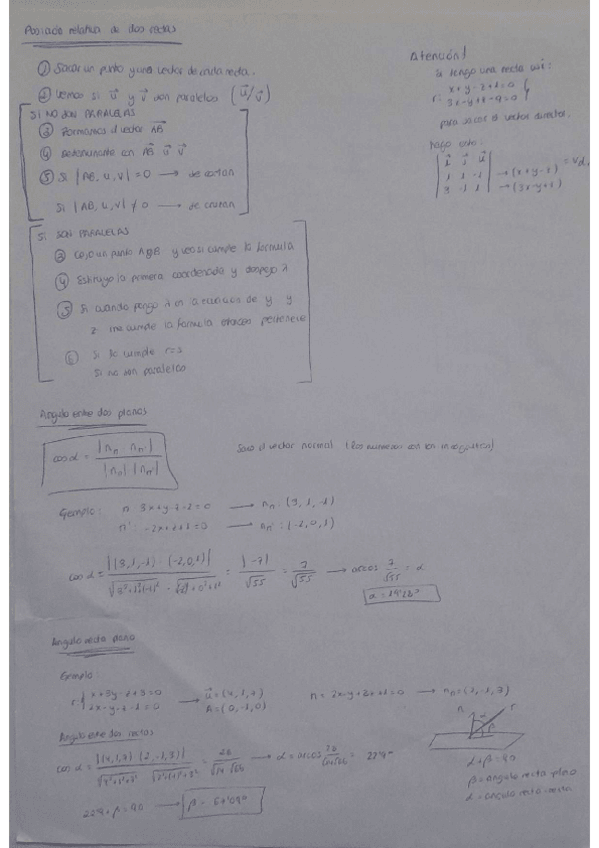 Posición relativa de dos rectas
① Sacar un punto y un vector de cada recta.
② Vemos si u⃗ y v⃗ son paralelos (u⃗/v⃗)
SI NO SON PARALELAS
③ Formamos el vector AB⃗
④ Determinante en AB⃗ u⃗ v⃗
⑤ Si |AB, u, v| = 0 → se cortan
Si |AB, u, v| ≠ 0 → se cruzan
Si SON PARALELAS
③ Cojo un punto A o B y veo si cumple la formula
④ Sustituyo la primera coordenada y despejo λ
⑤ Si cuando pongo λ en la ecuación de y y
z me cumple la formula entonces pertenece
⑥ Si lo cumple r=s
Si no son paralelas
Atención!
Si tengo una recta así:
r: x+y-z+1=0
3x-y+z-9=0
para sacar el vector director.
hago esto:
1 1 -1 → (x+y-z)
3 -1 1 → (3x-y+z)
Angulo entre dos planos
cos α =
Saco el vector normal (los numeros con las incognitas)
Ejemplo: π 3x+y-z-2=0 → nπ: (3,1,-1)
π': -2x+z+1=0 → nπ': (-2,0,1)
cos α = |(3,1,-1) · (-2,0,1)| = |-7| / √55 = 7/√55 → arcos 7/√55 = α
Angulo recta plano
Ejemplo:
r: x+3y-z+3=0 → u⃗=(4,1,7) π=2x-y+3z+1=0 → nπ=(2,-1,3)
2x-y-z-1=0 A=(0,-1,0)
Angulo entre dos rectas
cos α = |(4,1,7) · (2,-1,3)| = 28 → α = arcos
α+β=90
β=angulo recta-plano
α=angulo recta-recta